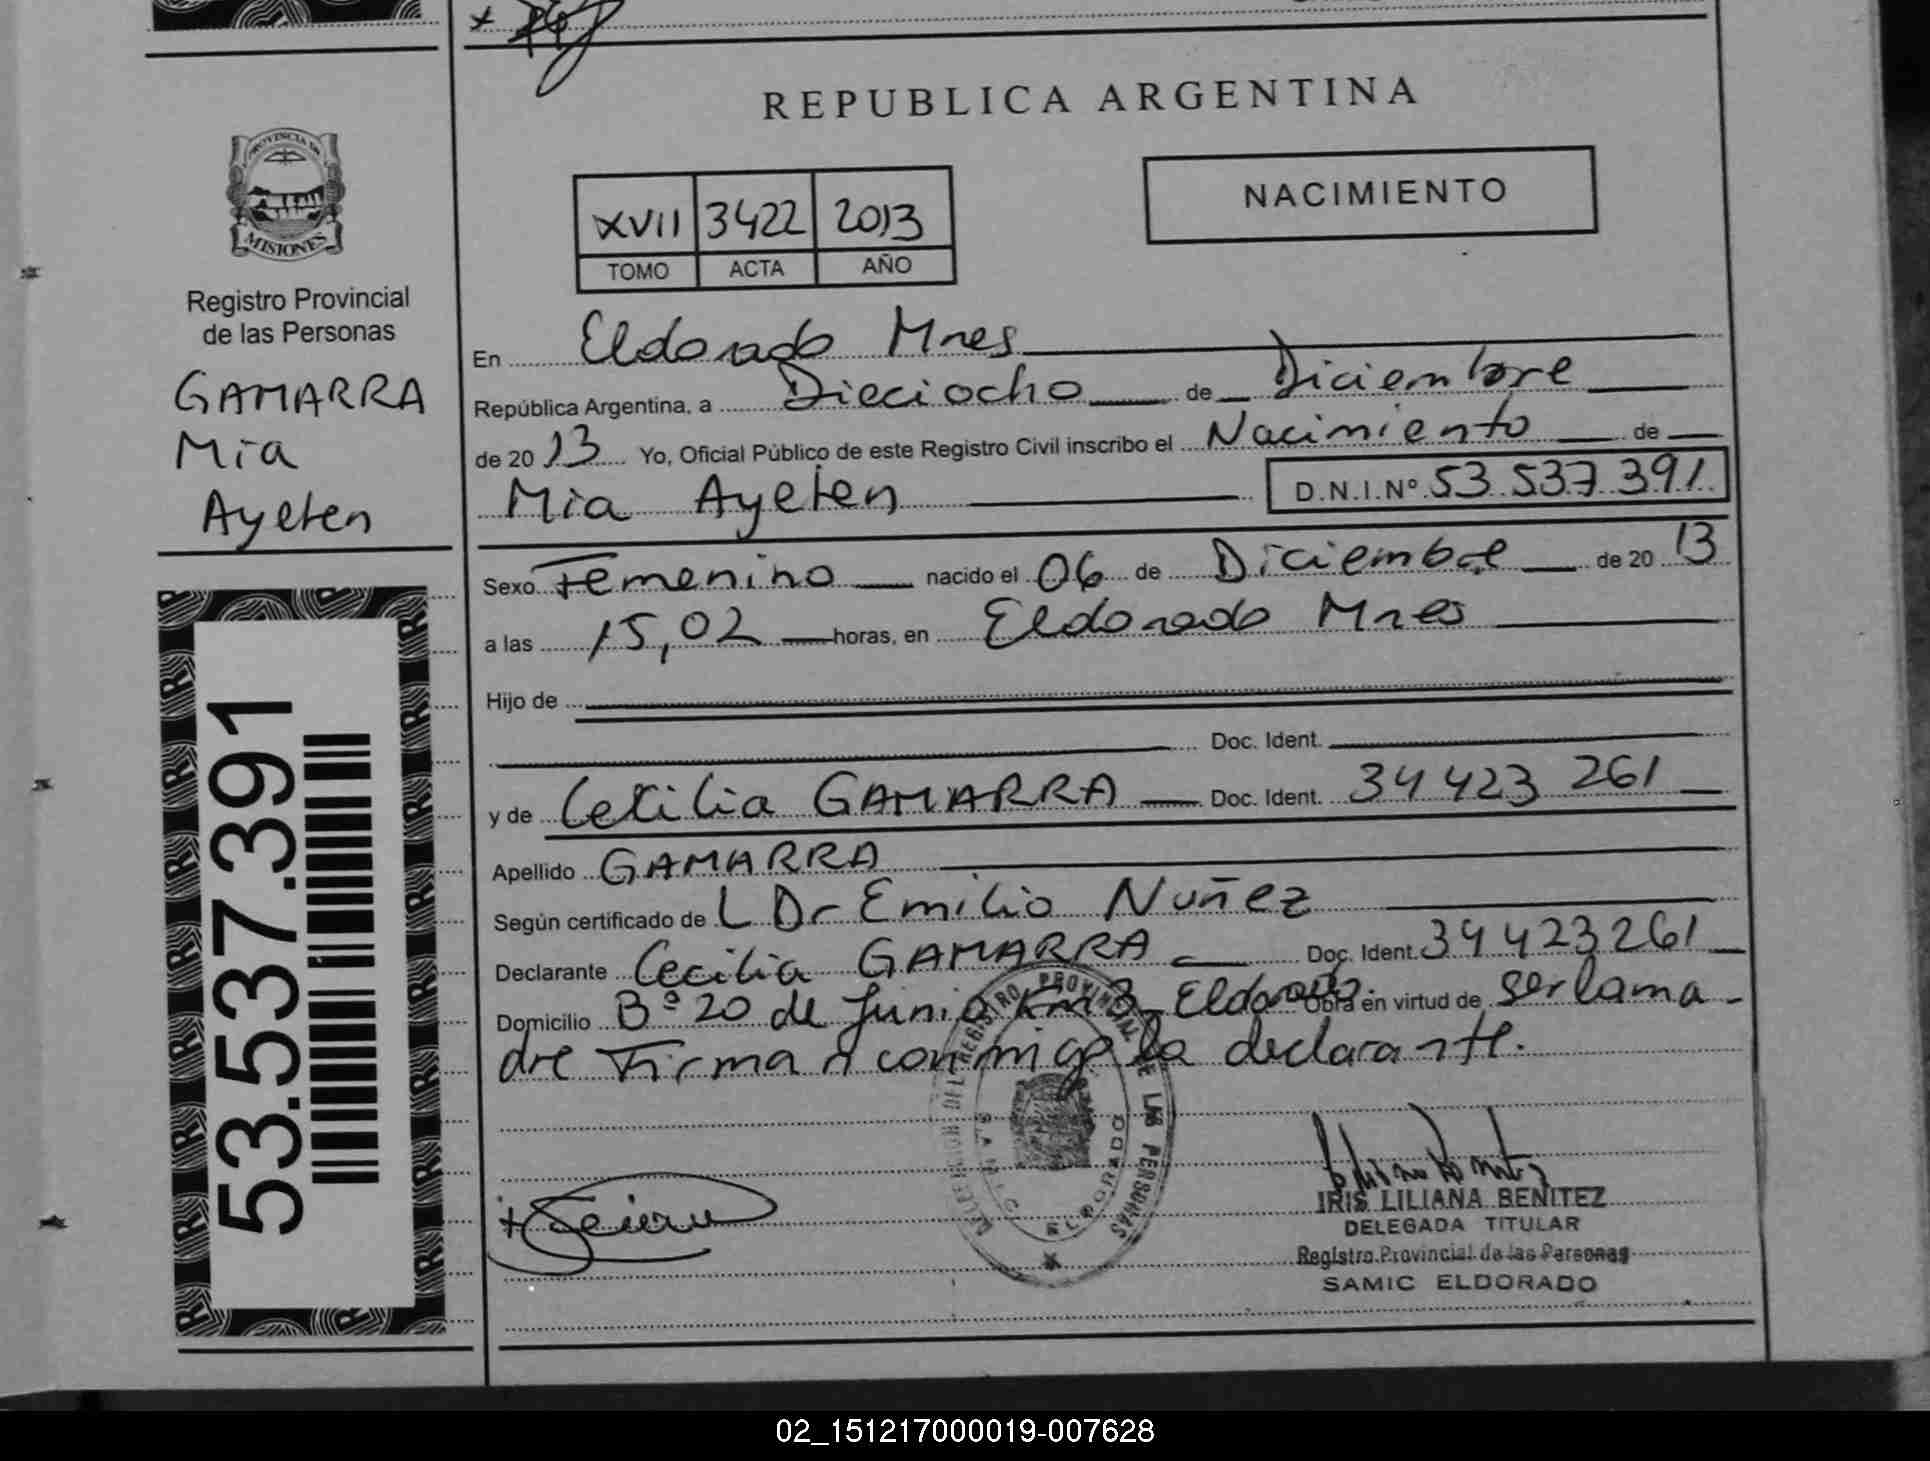 REPUBLICA ARGENTINA
PROVINCIA DE
MISIONES
Registro Provincial
de las Personas
GAMARRA
Mia
Ayelen
53.537.391
XVII 3422 2013
TOMO ACTA AÑO
NACIMIENTO
En Eldorado Mnes
República Argentina, a Dieciocho de Diciembre
de 2013 Yo, Oficial Público de este Registro Civil inscribo el Nacimiento de
Mia Ayelen D.N.I.Nº 53 537 391
Sexo Femenino nacido el 06 de Diciembre de 20 13
a las 15,02 horas, en Eldorado Mnes
Hijo de
Doc. Ident.
y de Cecilia GAMARRA Doc. Ident. 34 423 261
Apellido GAMARRA
Según certificado de L Dr Emilio Nuñez
Declarante Cecilia GAMARRA Doc. Ident. 34 423 261
Domicilio Bº 20 de Junio Km 3 Eldorado. Obra en virtud de ser la ma-
dre Firma n conmigo la declarante.
REGISTRO PROVINCIAL DE LAS PERSONAS
ELDORADO
IRIS LILIANA BENITEZ
DELEGADA TITULAR
Registro Provincial de las Personas
SAMIC ELDORADO
02_151217000019-007628